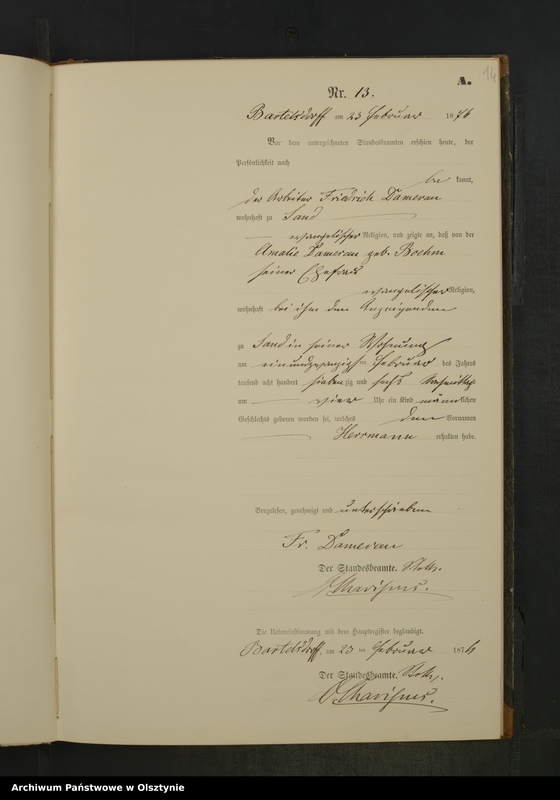 14
A.
Nr. 13.
Bartelsdorff am 23 Februar 1876
Vor dem unterzeichneten Standesbeamten erschien heute, der
Persönlichkeit nach
be kannt,
der Arbeiter Friedrich Damerau
wohnhaft zu Sand
evangelischer Religion, und zeigte an, daß von der
Amalie Damerau geb. Boehm
seiner Ehefrau
evangelischer Religion,
wohnhaft bei ihm dem Anzeigenden
zu Sand in seiner Wohnung
am einundzwanzigsten Februar des Jahres
tausend acht hundert sieben zig und sechs Nachmittags
um vier Uhr ein Kind männlichen
Geschlechts geboren worden sei, welches den Vornamen
Herrmann erhalten habe.
Vorgelesen, genehmigt und unterschrieben
Fr. Damerau
Der Standesbeamte.
Die Uebereinstimmung mit dem Hauptregister beglaubigt.
Bartelsdorff, am 23 ten Februar 1876
Der Standesbeamte.
Archiwum Państwowe w Olsztynie